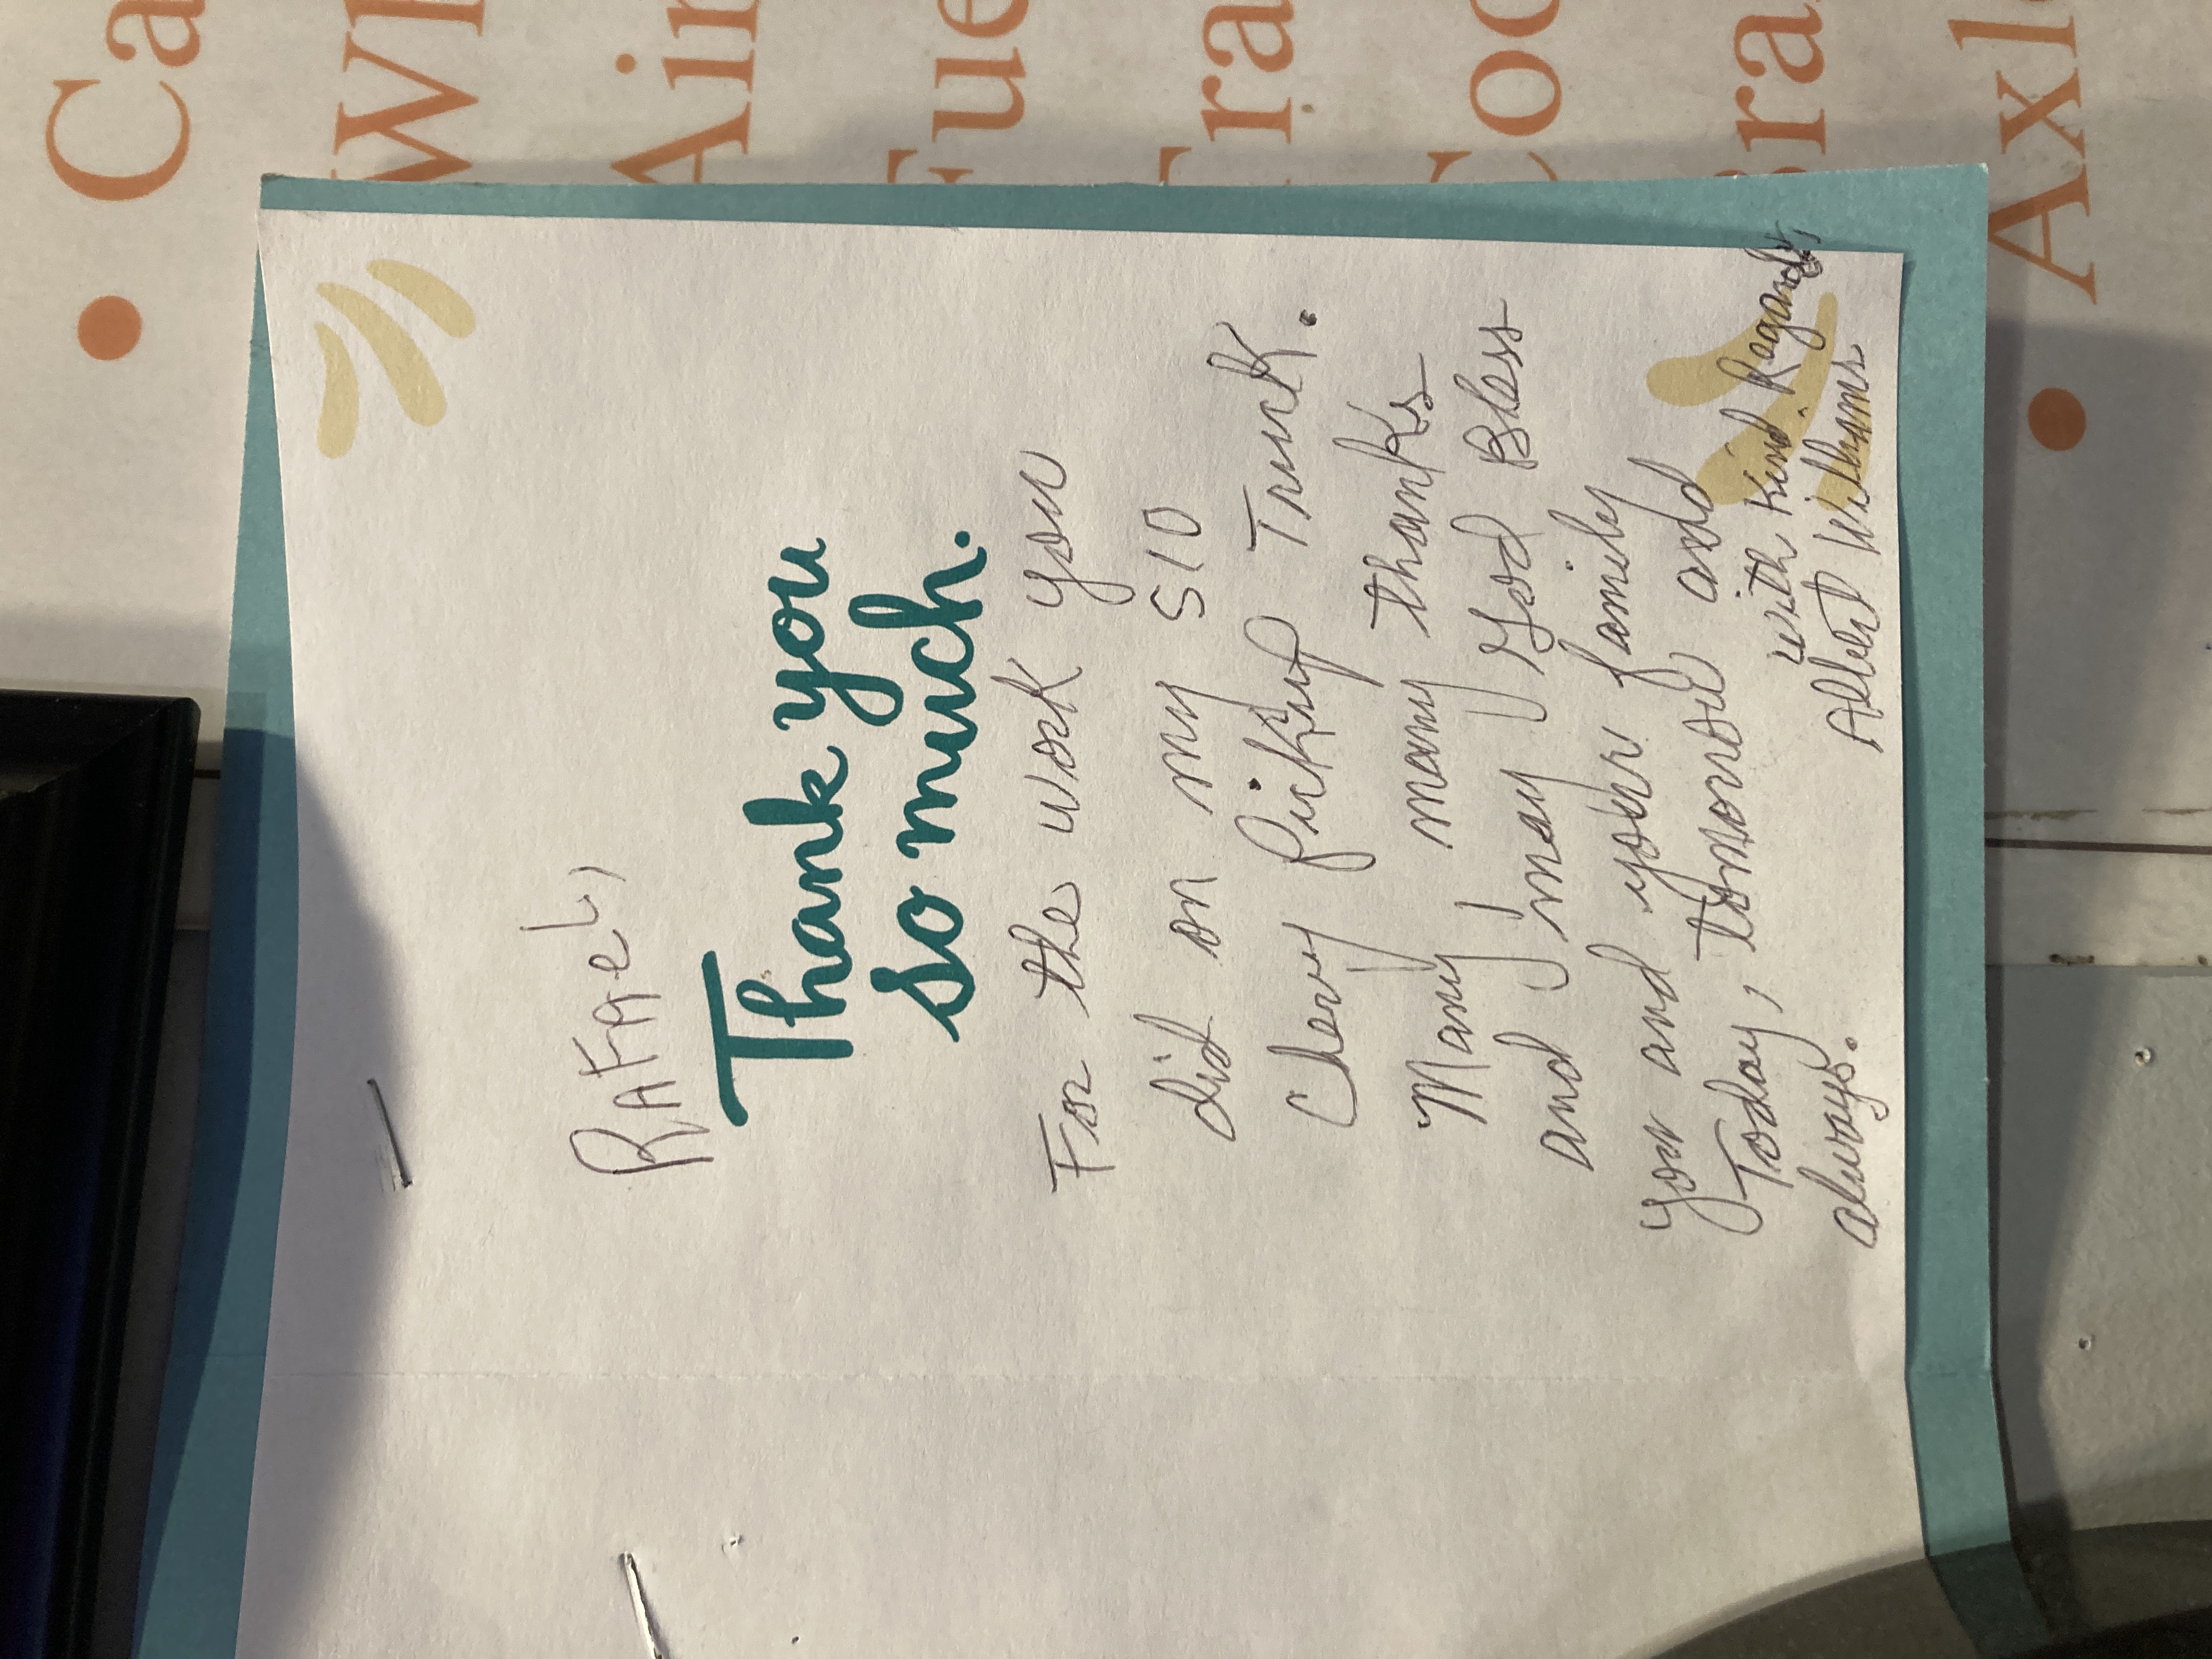 RAFAeL,
Thank you
so much.
For the work you
did on my S10
Chevy pickup Truck.
Many many thanks
and may God Bless
you and your family
Today, tomorrow and
always.
with Kind Regards,
Albert Williams
• Ca
Wh
Air
Fue
Tra
Coo
Bra
• Axl